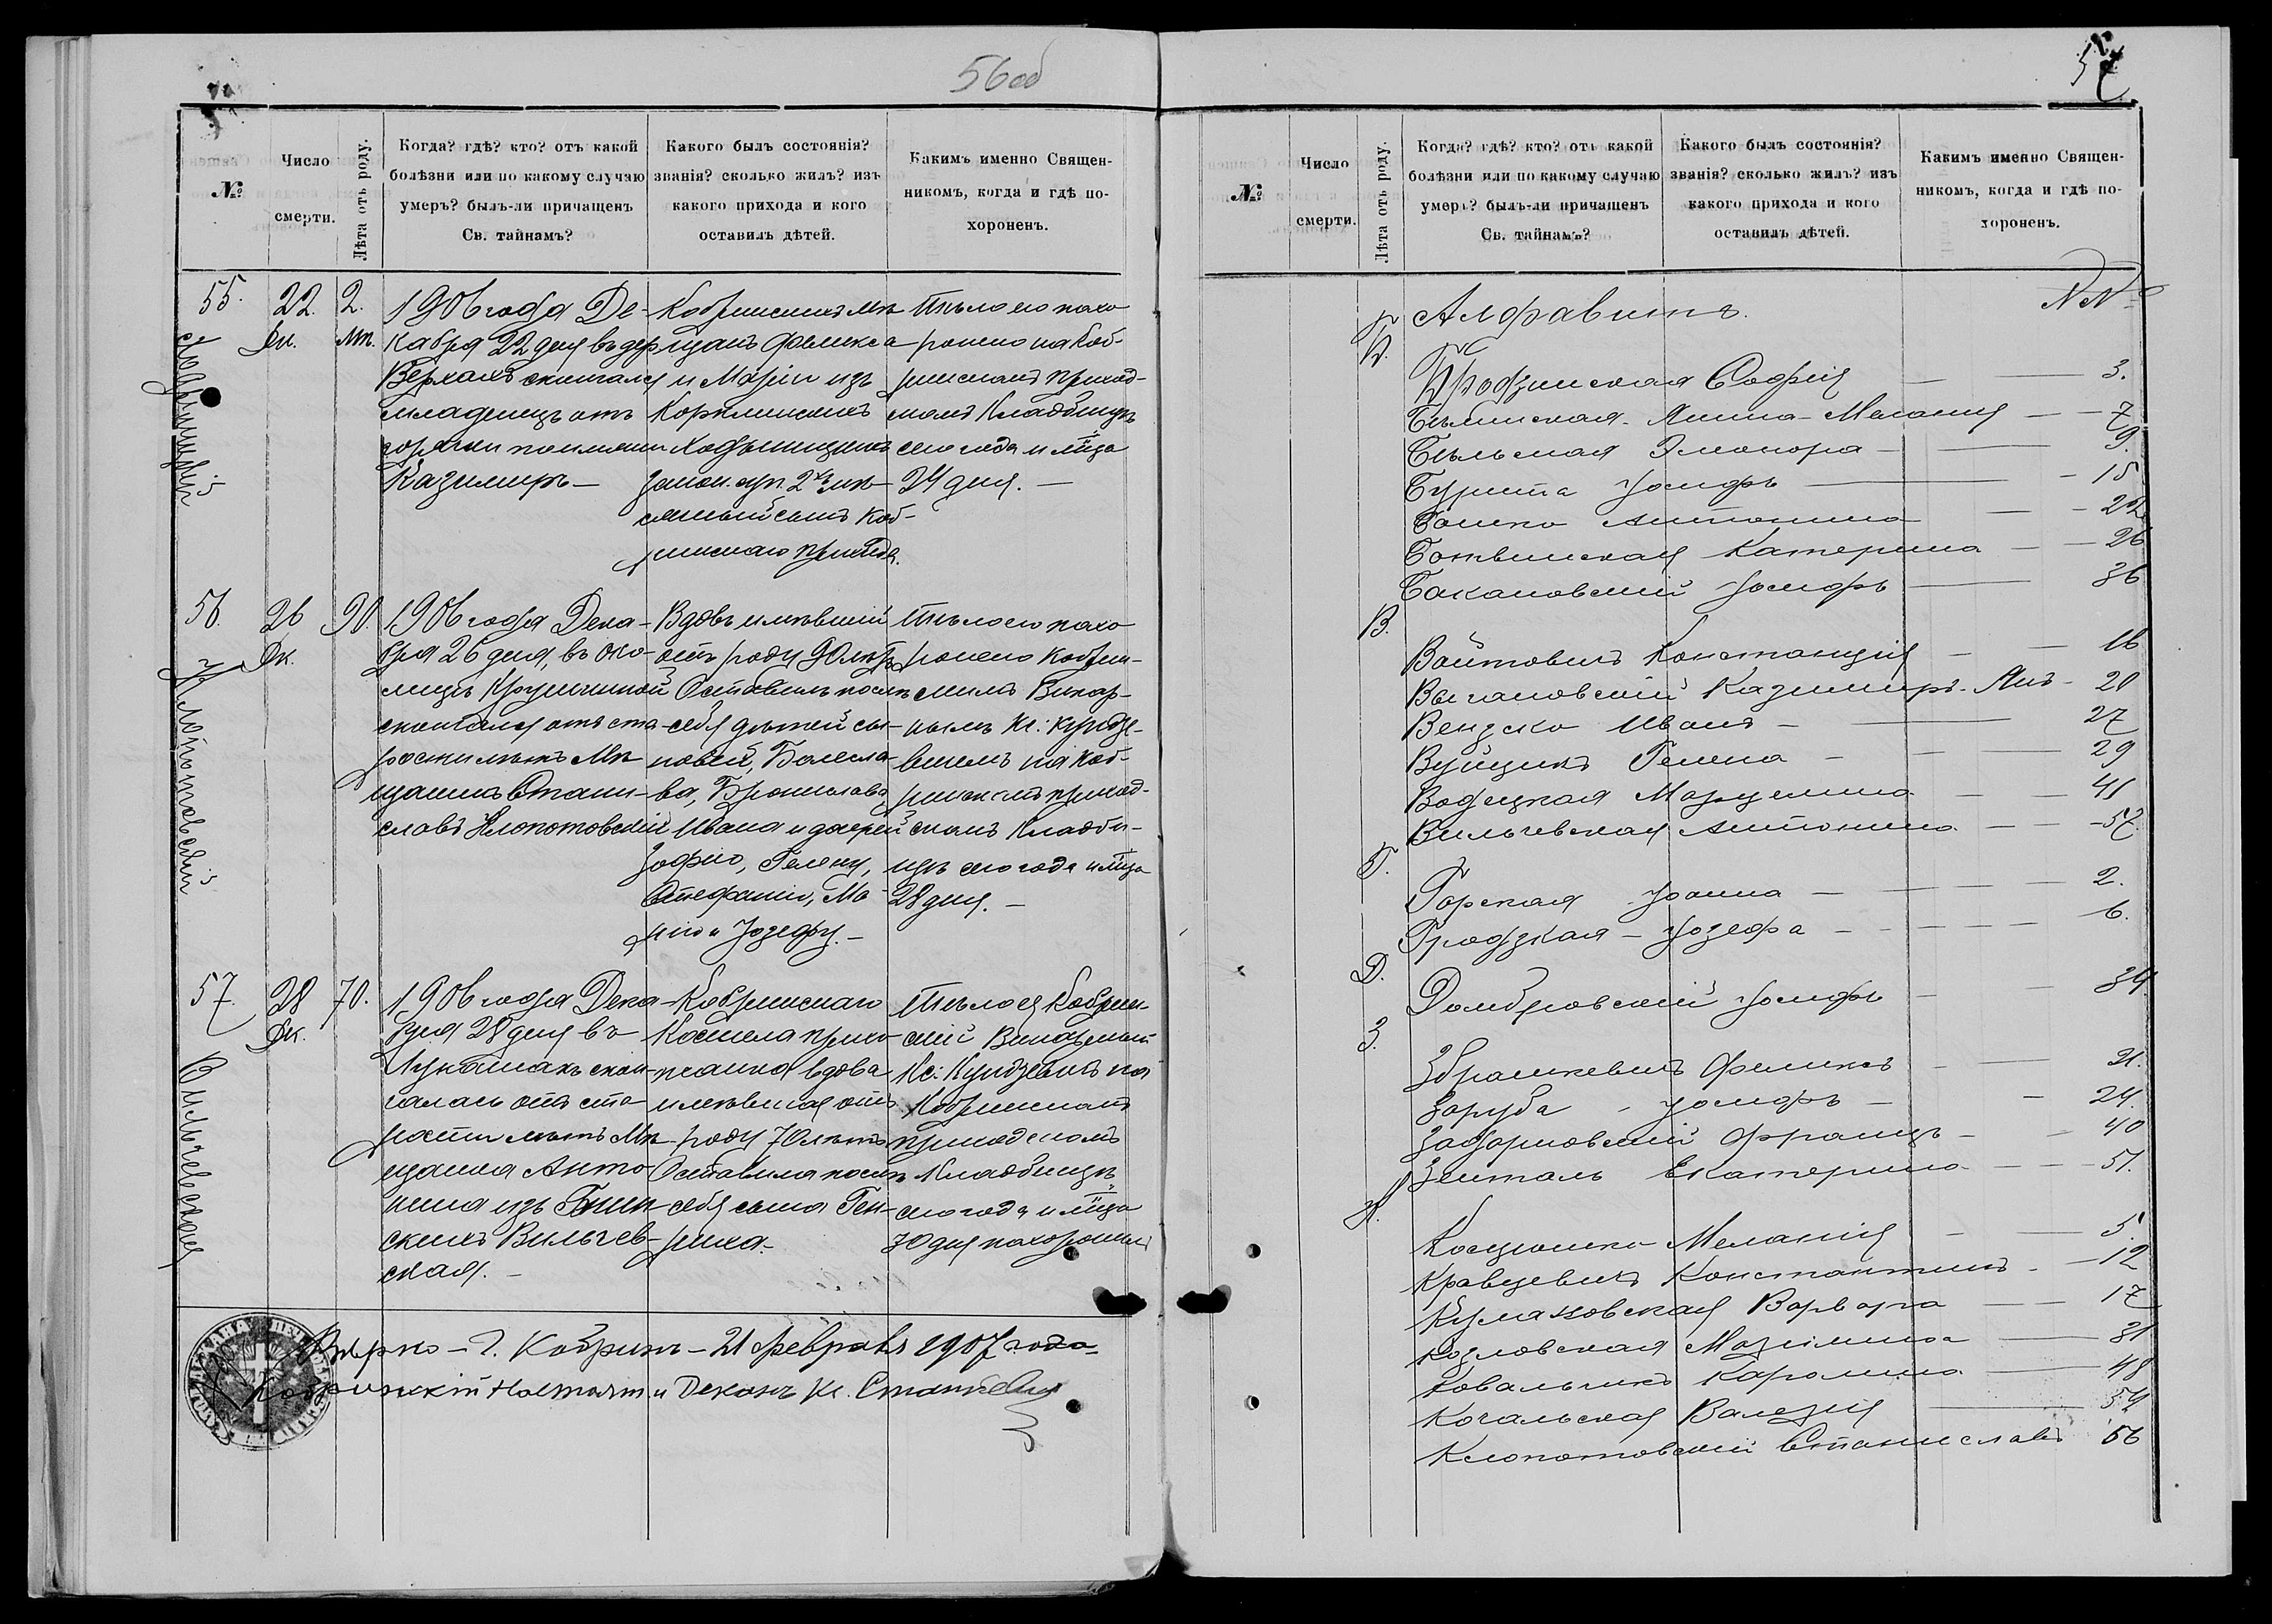 56 об
№
Число
смерти.
Лѣта отъ роду.
Когда? гдѣ? кто? отъ какой
болѣзни или по какому случаю
умеръ? былъ-ли причащенъ
Св. тайнамъ?
Какого былъ состоянія?
званія? сколько жилъ? изъ
какого прихода и кого
оставилъ дѣтей.
Какимъ именно Священ-
никомъ, когда и гдѣ по-
хороненъ.
55.
22.
Дк.
2.
Мт.
1906 года Де-
кабря 22 дня въ дер
Верхахъ скончался
младенецъ отъ
горячки по имени
Казимиръ —
Кобринскихъ мѣ
щанъ Феликса
и Маріи изъ
закон. суп. 2хъ мѣ-
сячный сынъ Коб-
ринскаго прихода.
Тѣло его похо
ронено на Коб-
ринскомъ приход-
скомъ Кладбищѣ
сего года и мѣсца
24 дня. —
56.
26
Дк.
90.
1906 года Дека-
бря 26 дня, въ око-
лицѣ
скончался отъ ста-
рости лѣтъ Мѣ
щанинъ Стани-
славъ Клопотовскій
Клопотовскій
Вдовъ имѣвшій
отъ роду 90 лѣтъ
Оставилъ послѣ
себя дѣтей сы-
новей, Болесла-
ва, Бронислава,
Ивана и дочерей
Зофію, Гелену,
Стефанію, Ма-
рію и Іозефу. —
Тѣло его похо
ронено Кобрин-
скимъ Викар-
нымъ Кс:
на Коб-
ринскомъ приход-
скомъ Кладби-
щѣ сего года и мѣсца
28 дня. —
57.
28
Дк.
70.
1906 года Дека-
бря 28 дня въ
скон-
чалась отъ ста-
рости лѣтъ Мѣ
щанка Анто-
нина изъ
скихъ Вильчев-
ская. —
Вильчевская
Кобринскаго
Костела прихо-
жанка вдова
имѣвшая отъ
роду 70 лѣтъ
Оставила послѣ
себя сына Ген-
риха. —
Тѣло ея Кобрин-
скій Викарный
Кс: на
Кобринскомъ
приходскомъ
Кладбищѣ
сего года и мѣсца
30 дня похоронилъ
Вѣрно — Г. Кобринъ — 21 Февраля 1907 года
Кобринскій Настоят. и Деканъ Кс.
57
№
Число
смерти.
Лѣта отъ роду.
Когда? гдѣ? кто? отъ какой
болѣзни или по какому случаю
умеръ? былъ-ли причащенъ
Св. тайнамъ?
Какого былъ состоянія?
званія? сколько жилъ? изъ
какого прихода и кого
оставилъ дѣтей.
Какимъ именно Священ-
никомъ, когда и гдѣ по-
хороненъ.
Алфавитъ. NNo
Б.
Бродзинская Софія — 3.
Анна-Меланія — 7
Бѣльская Элеонора — 9.
Іосифъ — 15
Антонина — 22
Ботвинская Катерина — 26
Бакановскій Іосифъ — 36
В.
Войтовичъ Констанція — 16
Казимиръ-Янъ — 20
Иванъ — 27
Вуйцикъ Гелена — 29
Водецкая Марцелина — 41
Вильчевская Антонина — 57
Г.
Горская Іоанна — 2.
Гродзкая — Іозефа — 6.
Д.
Домбровскій Іосифъ — 34.
З.
Збрашкевичъ Феликсъ — 21.
Заруба — Іосифъ — 24.
Францъ — 40
Екатерина — 51.
К.
Косцюшко Меланія — 5.
Кравцевичъ Константинъ — 12
Варвара — 17
Козловская — 31
Ковальчикъ Каролина — 48
Валерія — 54
Клопотовскій Станиславъ 56